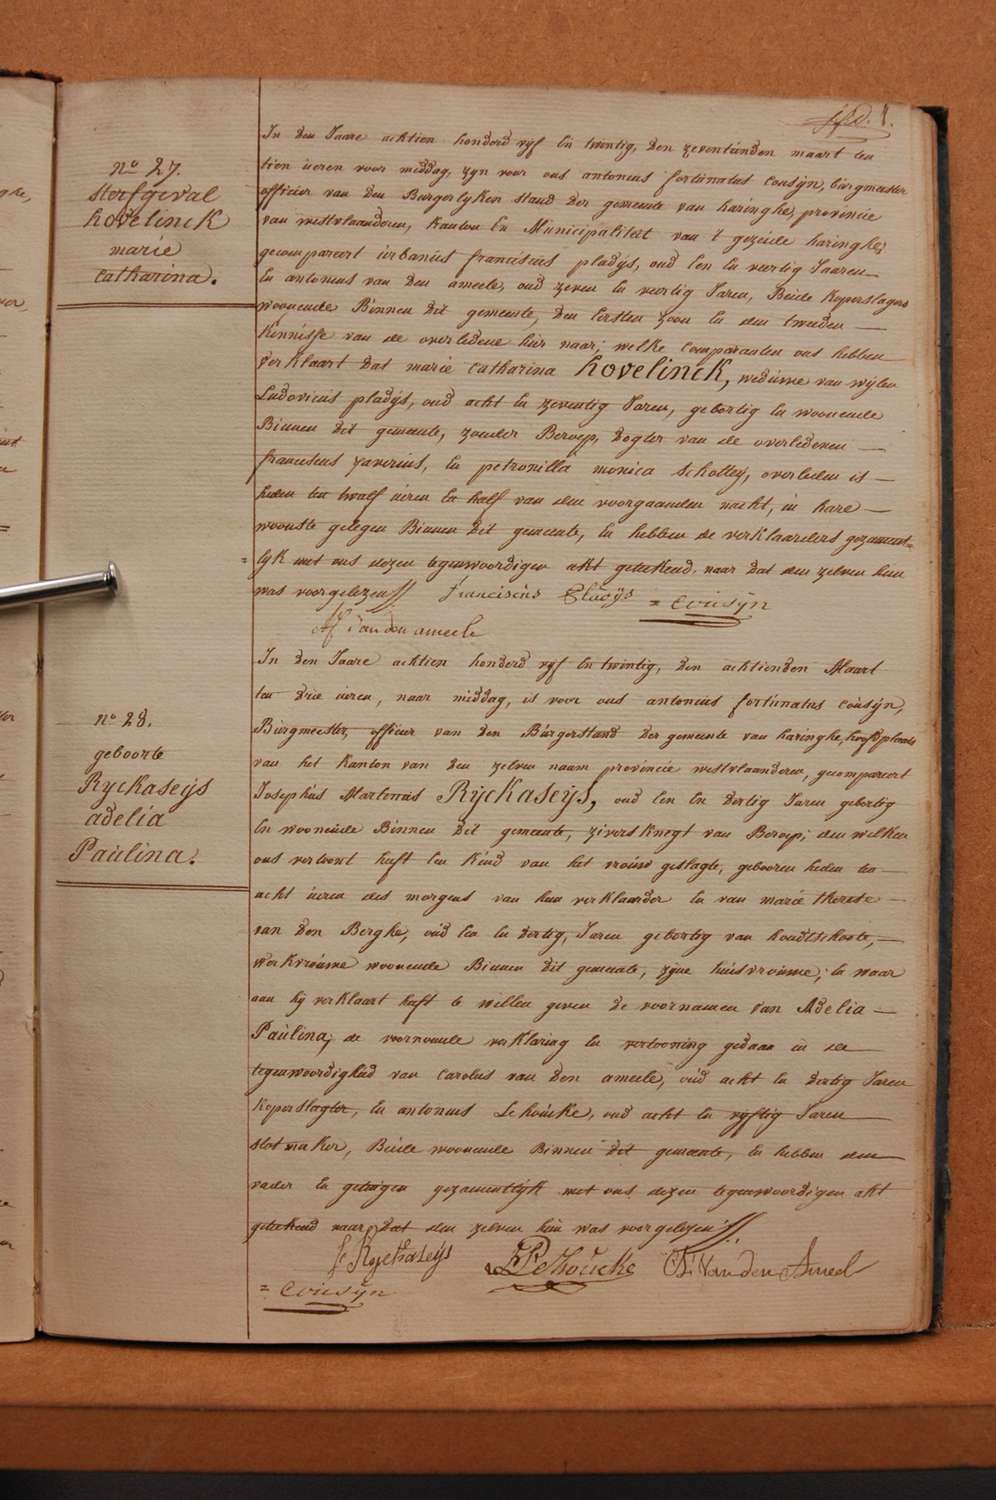 n° 27.
sterfgeval
hovelinck
marie
catharina.
In den Jaare achtien honderd vyf En twintig, den zeventienden maart ten
tien ueren voor middag, zyn voor ons antonius fortunatus cousÿn, burgmeester
officier van den Burgerlyken stand der gemeente van haringhe, provincie
van westvlaanderen, kanton En Municipaliteit van 't gezeide haringhe,
gecompareert urbanus franciscus pladÿs, oud Een En veertig Jaaren
En antonius van den ameele, oud zeven En veertig Jaren, Beide koperslagers
woonende Binnen Dit gemeente, den Eersten zoon En den tweeden
kennisse van de overledene hier naar; welke comparanten ons hebben
verklaart dat marie catharina hovelinck, weduwe van wÿlen
Ludovicus pladÿs, oud acht En zeventig Jaren, gebortig En woonende
Binnen Dit gemeente, zonder Beroep, Dogter van de overledenen
franciscus xaverius, En petronilla monica scholley, overleden is
heden ten twalf ueren En half van den voorgaanden nacht, in hare
woonste gelegen Binnen Dit gemeente, En hebben de verklaarders gezament=
=lyk met ons dezen tegenwoordigen akt geteekend, naar dat den zelven hun
was voorgelezen //. franciscus Pladÿs = Cousÿn
AF Van den ameele
n° 28.
geboorte
Ryckaseÿs
adelia
Paulina.
In den Jaare achtien honderd vyf En twintig, den achtienden Maart
ten drie ueren, naar middag, is voor ons antonius fortunatus cousÿn,
Burgmeester, officier van den Burgerstand der gemeente van haringhe, hoofdplaats
van het kanton van den zelven naam provincie westvlaanderen, gecompareert
Josephus Martinus Ryckaseÿs, oud Een En Dertig Jaren gebortig
En woonende Binnen Dit gemeente, ziversknegt van Beroep; den welken
ons vertoont heeft Een kind van het vrouw geslagte, gebooren heden ten
acht ueren des morgens van hem verklaarder En van marie therese
van Den Berghe, oud Een En dertig, Jaren gebortig van houdtschoote,
werkvrouwe woonende Binnen Dit gemeente, zyne huisvrouwe; En waar
aan hij verklaart heeft te willen geven de voornamen van Adelia
Paulina; de voornoemde verklaring En vertooning gedaan in de
tegenwoordigheid van Carolus van Den ameele, oud acht En dertig Jaren
koperslagter, En antonius Lehoucke, oud acht En vyftig Jaren
slotmaker, Beide woonende Binnen Dit gemeente, En hebben den
vader En getuigen gezamentlyk met ons dezen tegenwoordigen akt
geteekend naar dat den zelven hun was voorgelezen //.
J Ryckaseÿs Lehoucke C Van den Ameel
= Cousÿn